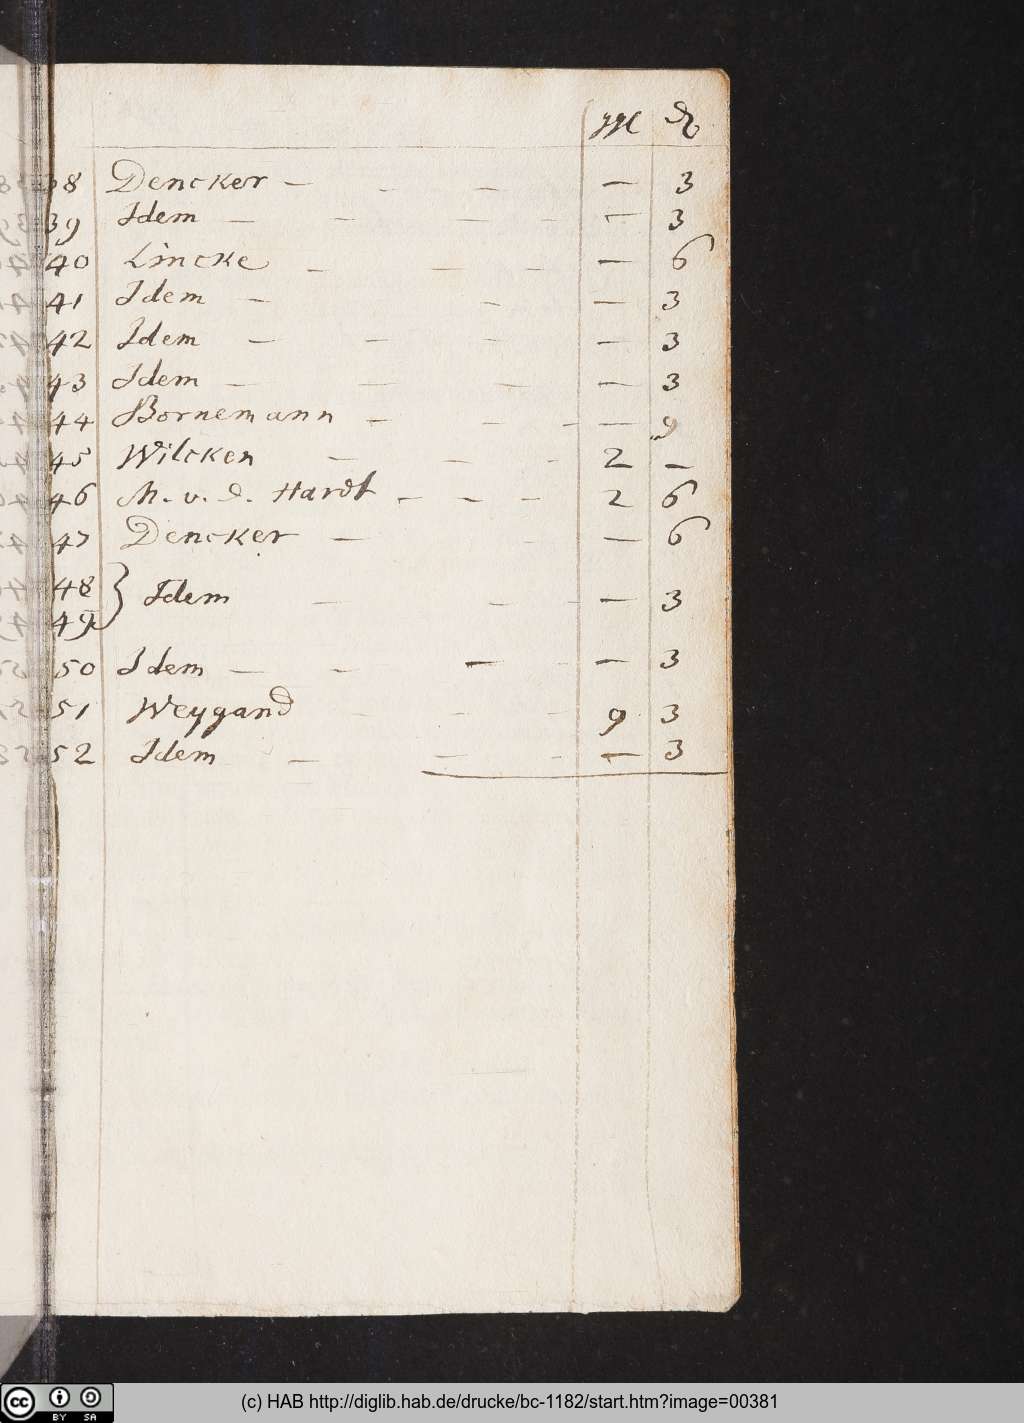 M ₰
38 Dencker — — — — 3
39 Idem — — — — 3
40 Lincke — — — — 6
41 Idem — — — 3
42 Idem — — — — 3
43 Idem — — — — 3
44 Bornemann — — — — 9
45 Wilcken — — — 2 —
46 M. v. d. Hardt — — — 2 6
47 Dencker — — — 6
48 } Idem — — — — 3
49
50 Idem — — — — 3
51 Weygand — — 9 3
52 Idem — — — — 3
(c) HAB http://diglib.hab.de/drucke/bc-1182/start.htm?image=00381
cc BY SA